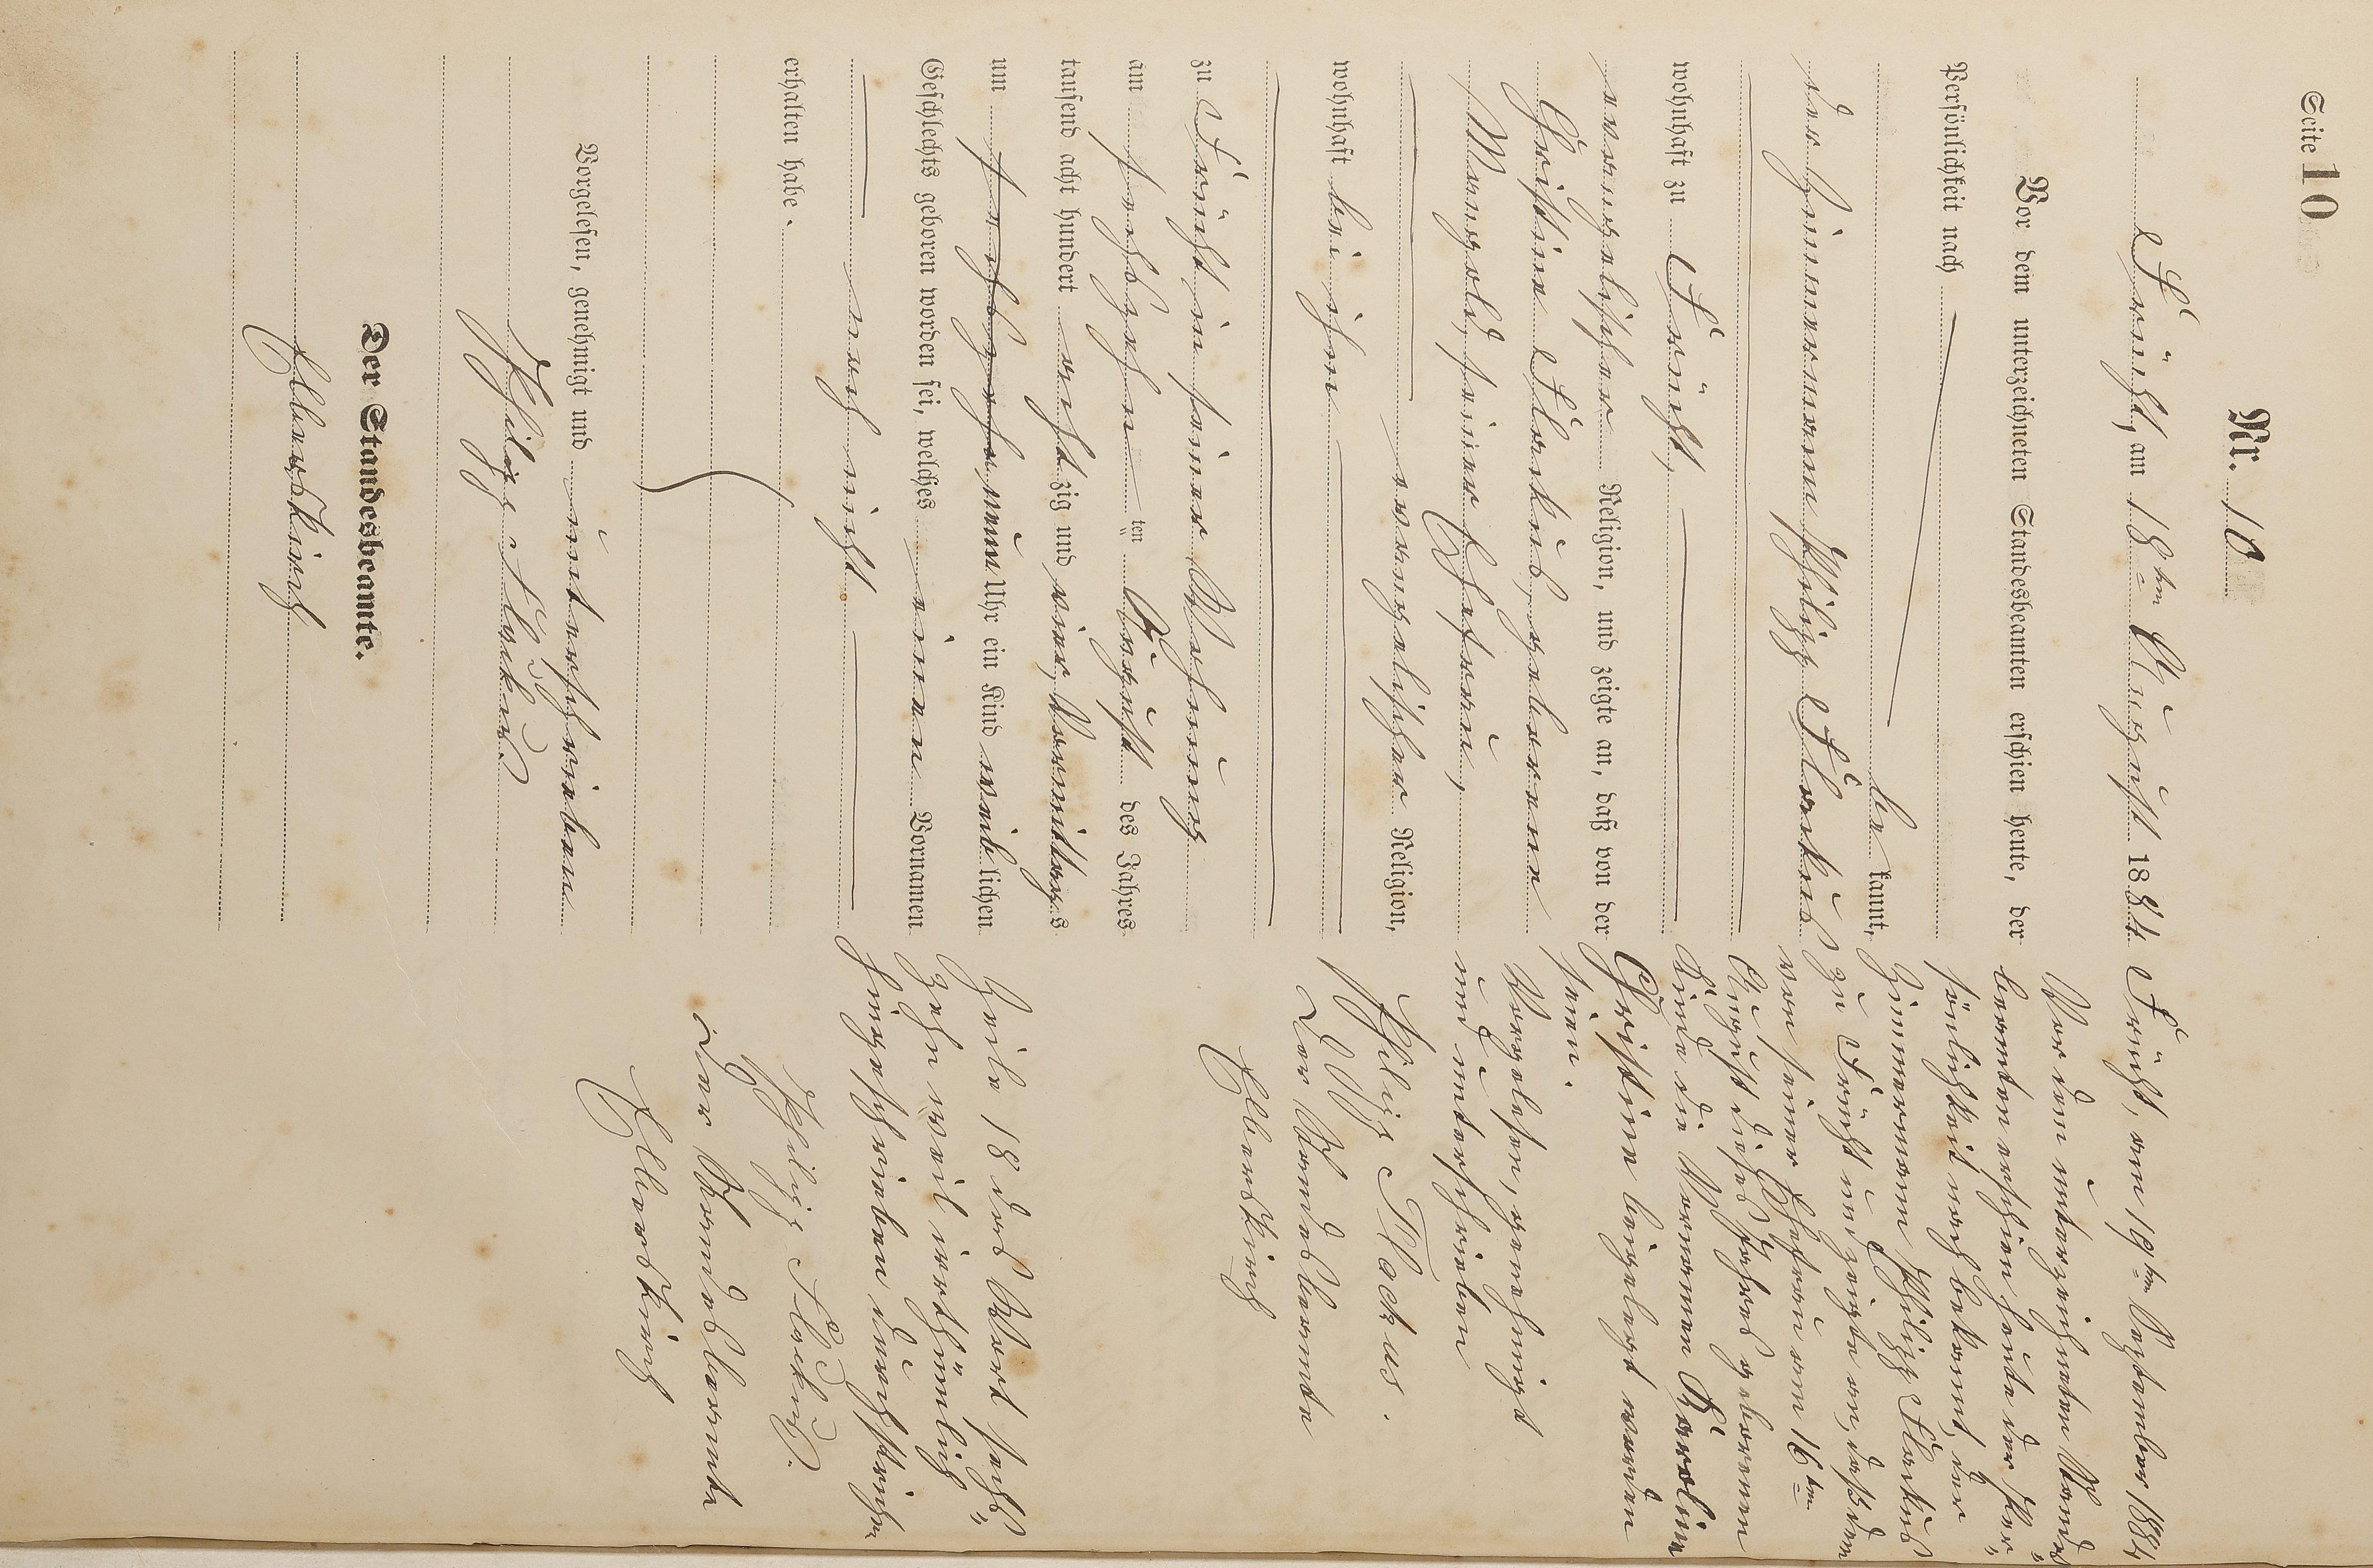 Seite 10
Nr. 10
Frücht, am 18ten August 1884
Vor dem unterzeichneten Standesbeamten erschien heute, der
Persönlichkeit nach
be kannt,
der Zimmermann Philipp Flockus
wohnhaft zu Frücht,
evangelischer Religion, und zeigte an, daß von der
Christine Flockus, geborenen
Mangold, seiner Ehefrau,
evangelischer Religion,
wohnhaft bei ihm
zu Frücht in seiner Wohnung
am sechszehn ten August des Jahres
tausend acht hundert achtzig und vier, Vormittags
um sechszehn, neun Uhr ein Kind weiblichen
Geschlechts geboren worden sei, welches einen Vornamen
noch nicht
erhalten habe.
Vorgelesen, genehmigt und unterschrieben
Philipp Flockus.
Der Standesbeamte.
Elberskirch
Frücht, am 19ten September 1884
Vor dem unterzeichneten Standes„
beamten erschien heute der Per„
sönlichkeit nach bekannt, der
Zimmermann Philipp Flockus
zu Frücht und zeigte an, daß dem
von seiner Ehefrau am 16ten
August dieses Jahres geborenen
Kinde die Vornamen Karoline
Christine beigelegt worden
seien.
Vorgelesen, genehmigt
und unterschrieben
Philip Flockus.
Der Standesbeamte
Elberskirch
Zeile 18 das Wort sechs„
zehn weil irrthümlich
hingeschrieben durchstrichen
Philip Flockus.
Der Standesbeamte
Elberskirch